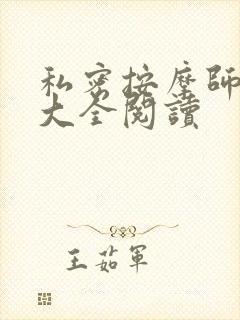 私密按摩師
大全閱讀
王茹軍